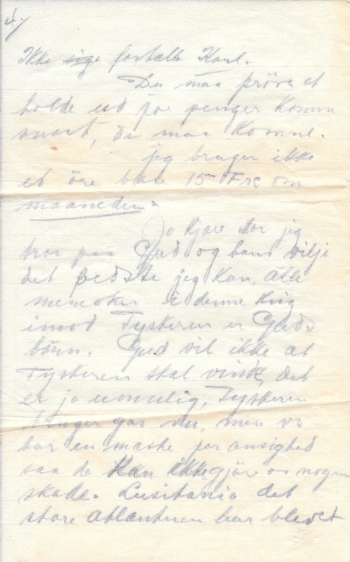 4/
Ikke sige fortælle Karl.
Du maa pröve at
holde ud for penger komm
snart, de maa komme.
jeg bruger ikke
et öre bare 15 Frc om
maaneden.
Ja kjære Mor jeg
tror paa Gud og hans Vilje
det bedste jeg kan, alle
mennesker i denne krig
imod Tyskeren er Guds
börn. Gud vil ikke at
Tyskeren skal vinde, det
er jo umulig, Tyskeren
bruger gas nu, men vi
har en maske for ansighed
saa de kan ikke gjör os nogen
skade. Lusitania det
store atlanteren har blevet